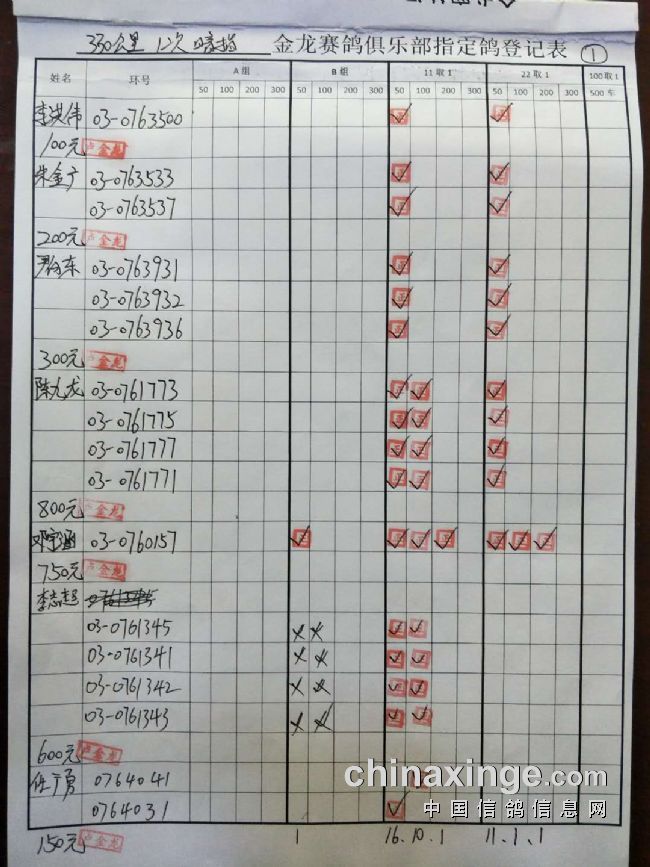 350公里 12次 金龙赛鸽俱乐部指定鸽登记表 ①
姓名 环号 A组 B组 11取1 22取1 100取1
50 100 200 300 50 100 200 300 50 100 200 300 50 100 200 300 500车
李洪伟 03-0763500
100元 卢金龙
朱金广 03-0763533
03-0763537
200元 卢金龙
03-0763931
03-0763932
03-0763936
300元 卢金龙
陈九龙 03-0761773
03-0761775
03-0761777
03-0761771
800元 卢金龙
邓宝涵 03-0760157
750元 卢金龙
李志超
03-0761345
03-0761341
03-0761342
03-0761343
600元 卢金龙
任广勇 0764041
chinaxinge.com
0764031
中国信鸽信息网
150元 卢金龙 1 16.10.1 11.1.1